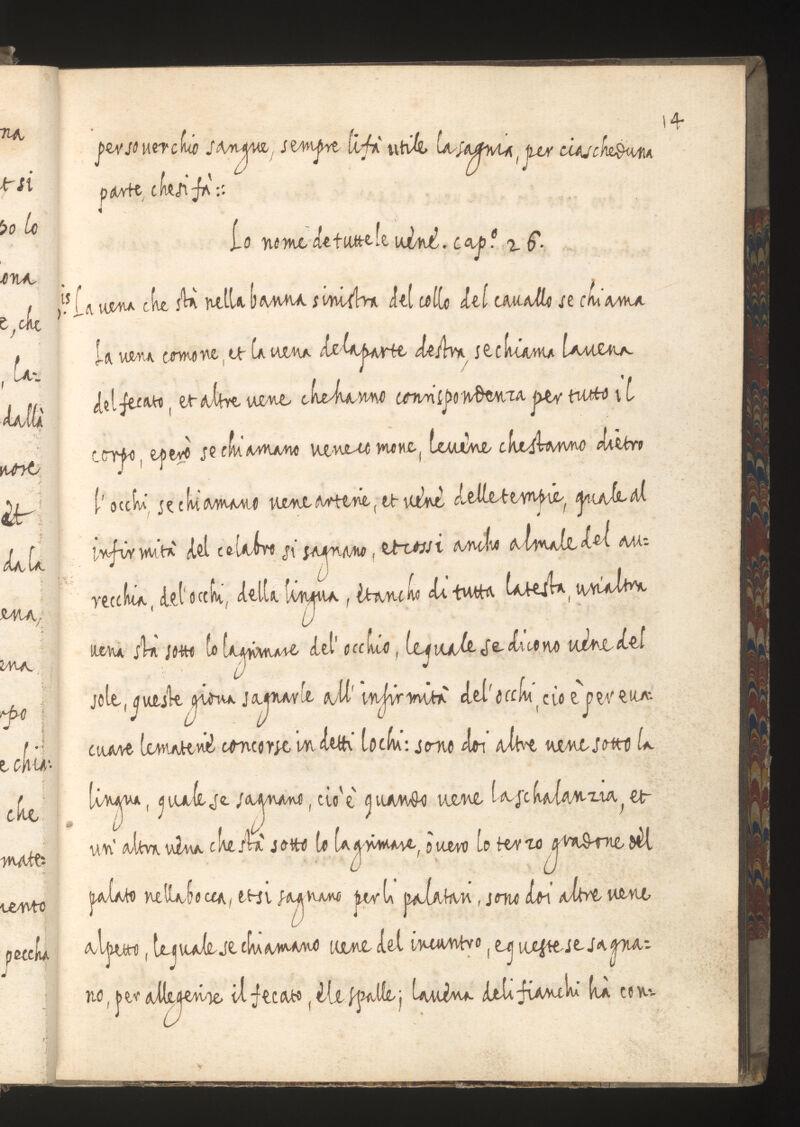 14
per soverchio sangue, sempre li fà utile la sagnia, per ciascheduna
parte, che si fà::
Lo nome de tutte le vène. cap.° 26.
La vena che stà nella banna sinistra del collo del cavallo se chiama
la vena comone, et la vena dela parte destra, se chiama la vena
del fecato, et altre vene che hanno conrispondenza per tutto il
corpo, e però se chiamano vene comone, le vène che stanno dietro
l'occhi, se chiamano vene arterie, et vène delle tempie, quale al
infirmità del celabro si sagnano, et cossi ancho al male del au=
recchia, del'occhi, della lingua, et ancho di tutta la testa, un'altra
vena stà sotto lo lagrimare del'occhio, le quale se dicono vène del
sole, queste giova sagnarle all'infirmità del'occhi, cio è per eva=
cuare le materiè concorse in detti lochi: sono doi altre vene sotto la
lingua, quale se sagnano, ciò è quando vene la schalanzia, et
un'altra vèna che stà sotto lo lagrimare, òvero lo terzo gradone dèl
palato nella bocca, et si sagnano per li palatari, sono doi altre vene
al petto, le quale se chiamano vene del incuntro, e queste se sagna=
no, per allegerire il fecato, è le spalle; la vèna deli fianchi hà con=
na
et si
po lo
ona
e, che
, la=
dallà
nore
èt
da la
ena,
ena
rpo
e chia=
che
mate=
mento
peccha